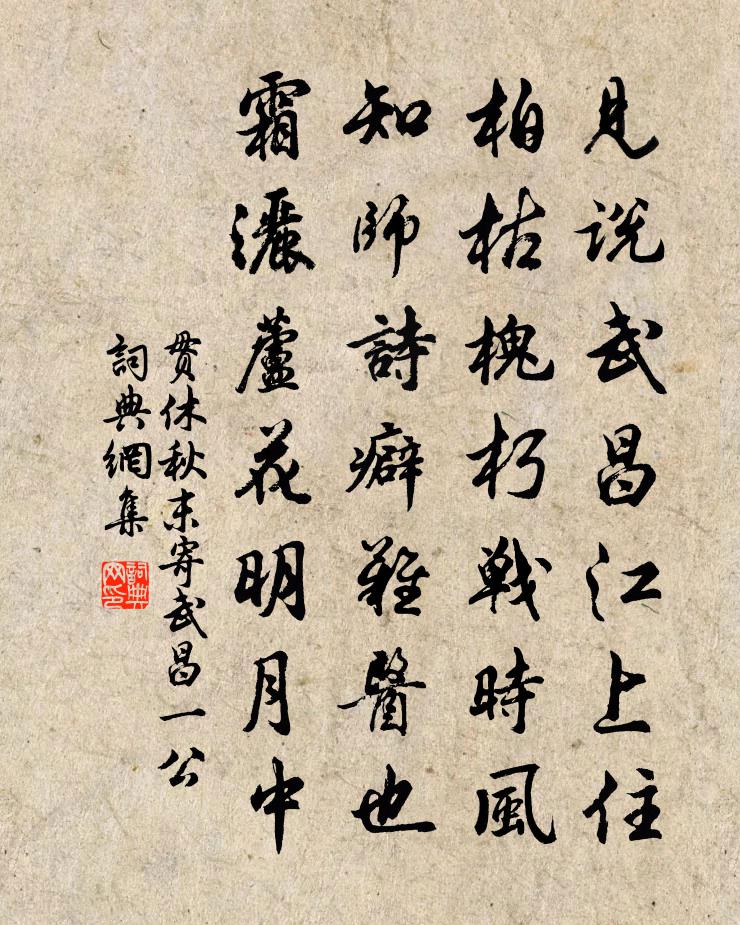 見説武昌江上住
柏枯槐朽戰時風
知師詩癖難醫也
霜灑蘆花明月中
貫休秋末寄武昌一公
詞典網集
詞典網印